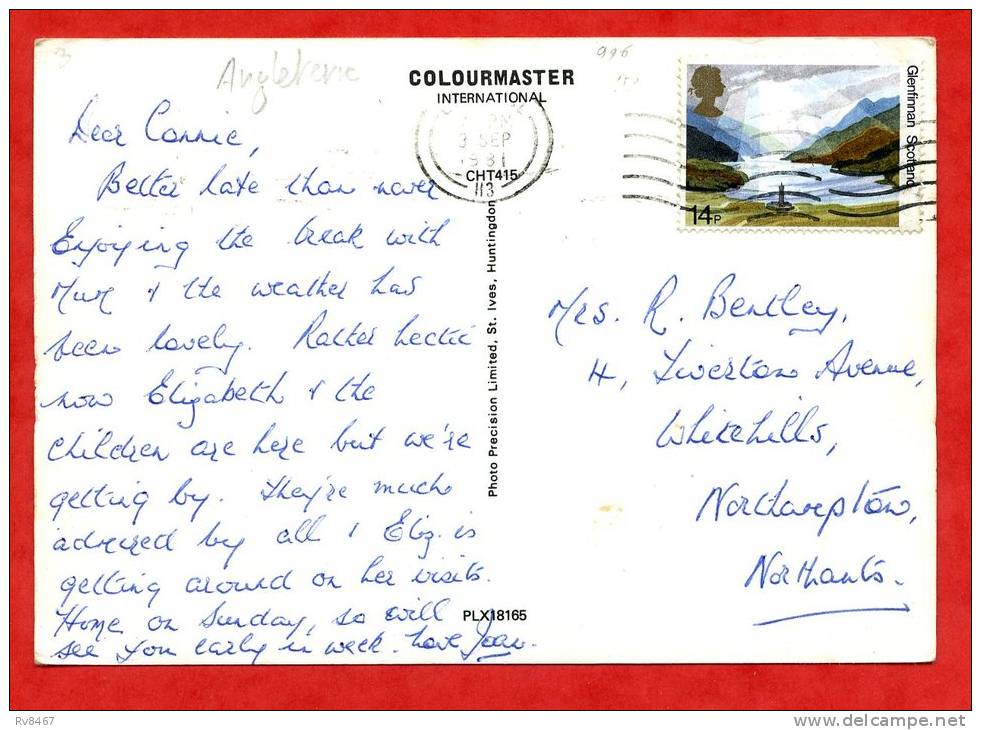 Angleterre
996
COLOURMASTER
INTERNATIONAL
3 SEP
1981
CHT415
113
Glenfinnan Scotland
14P
Dear Connie,
Better late than never
Enjoying the break with
Mum & the weather has
been lovely. Rather hectic
now Elizabeth & the
children are here but we're
getting by. They're much
admired by all & Eliz. is
getting around on her visits.
Home on Sunday, so will
see you early in week. Love Jean.
Photo Precision Limited, St. Ives, Huntingdon
PLX18165
Mrs. R. Bentley,
4, Tiverton Avenue,
Whitehills,
Northampton,
Northants.
Rv8467
www.delcampe.net